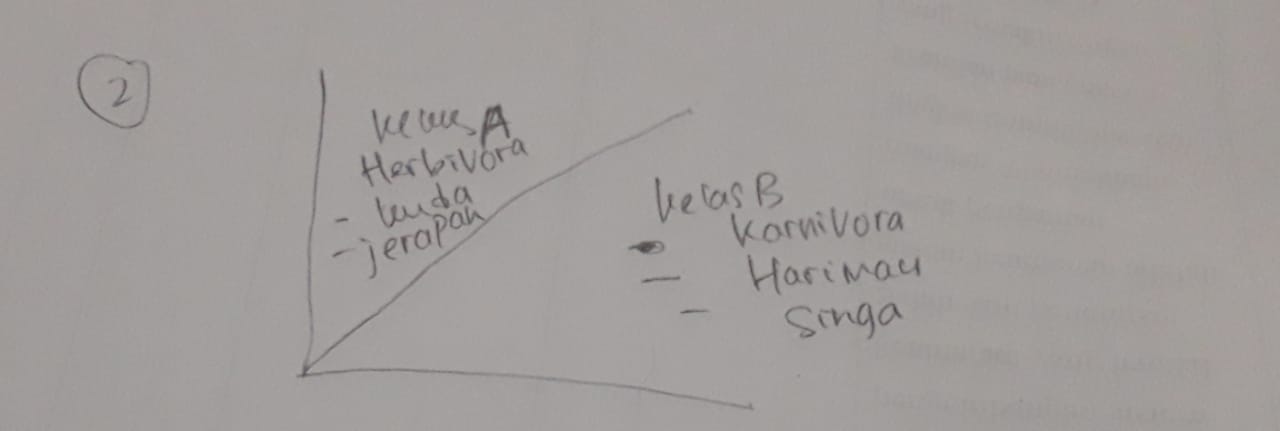 2
Kelas A
Herbivora
- kuda
- jerapah
kelas B
Karnivora
- Harimau
- Singa